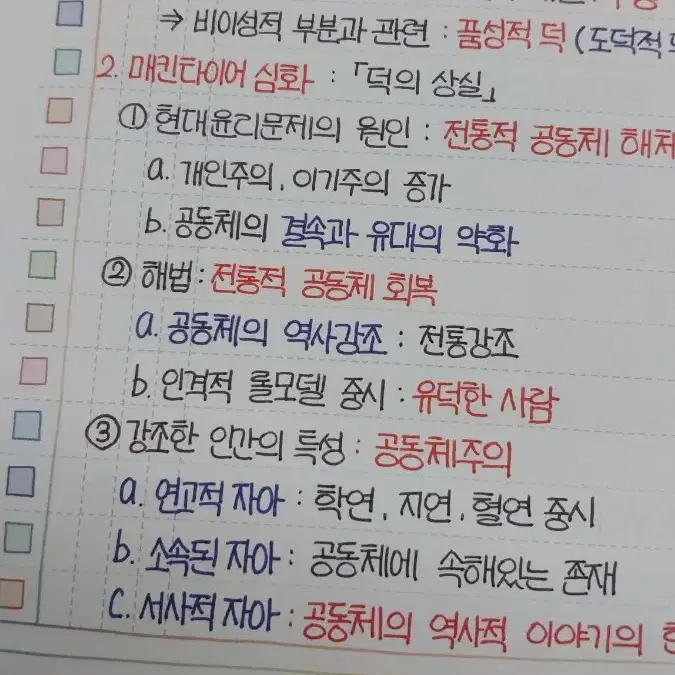 ⇒ 비이성적 부분과 관련 : 품성적 덕 (도덕적
2. 매킨타이어 심화 : 「덕의 상실」
① 현대윤리문제의 원인 : 전통적 공동체 해체
a. 개인주의, 이기주의 증가
b. 공동체의 결속과 유대의 약화
② 해법 : 전통적 공동체 회복
a. 공동체의 역사강조 : 전통강조
b. 인격적 롤모델 중시 : 유덕한 사람
③ 강조한 인간의 특성 : 공동체주의
a. 연고적 자아 : 학연, 지연, 혈연 중시
b. 소속된 자아 : 공동체에 속해있는 존재
C. 서사적 자아 : 공동체의 역사적 이야기의